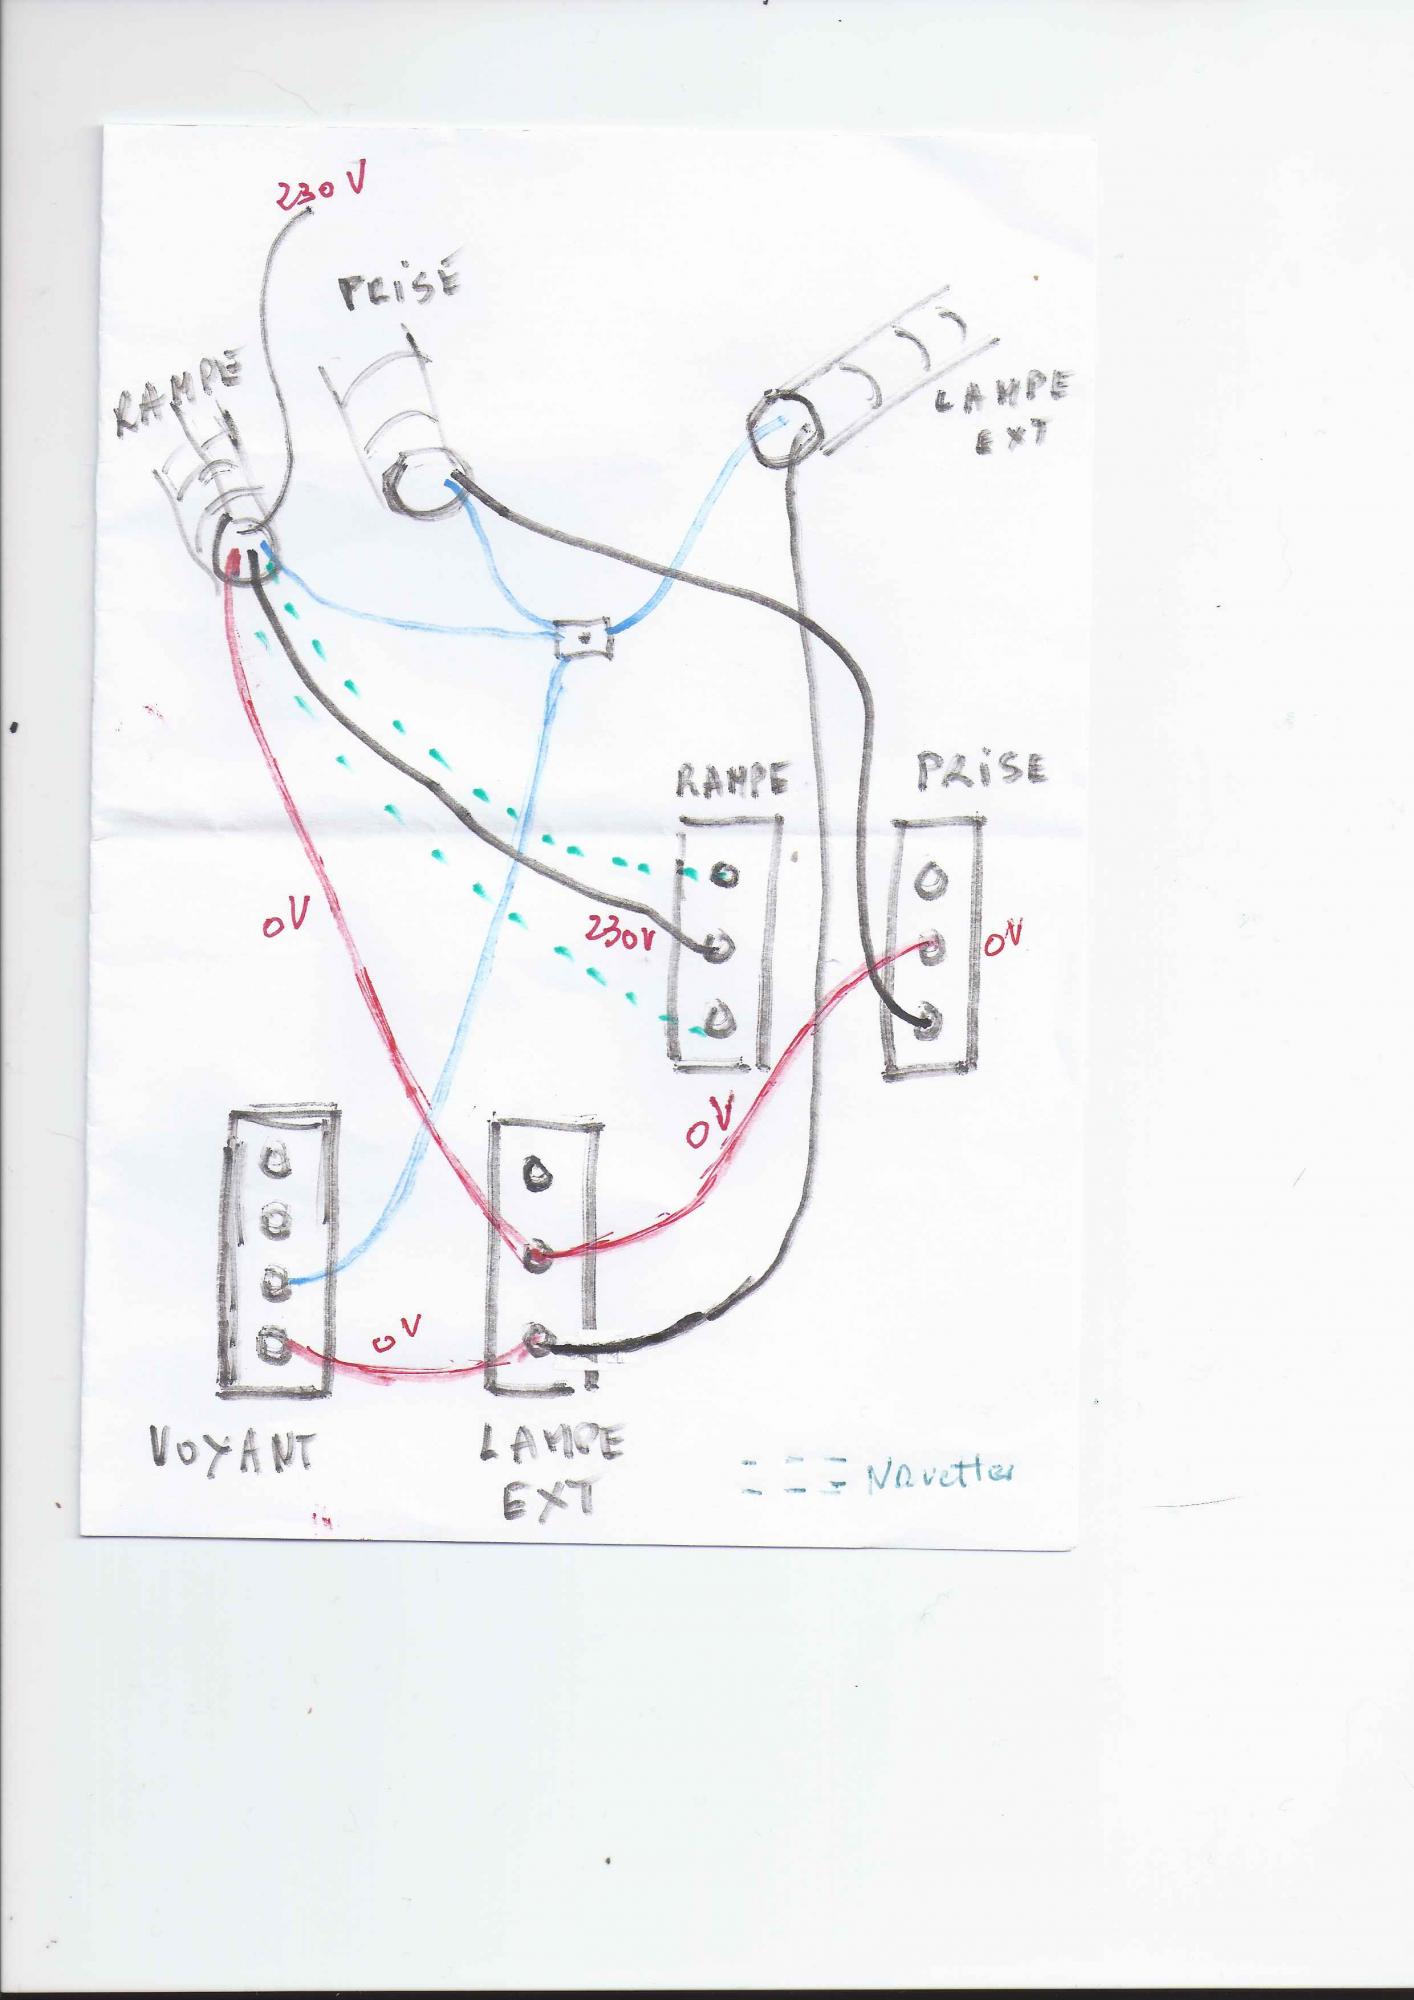 230V
PRISE
RAMPE
LAMPE
EXT
RAMPE
PRISE
0V
230V
0V
0V
0V
VOYANT
LAMPE
EXT
Navettes